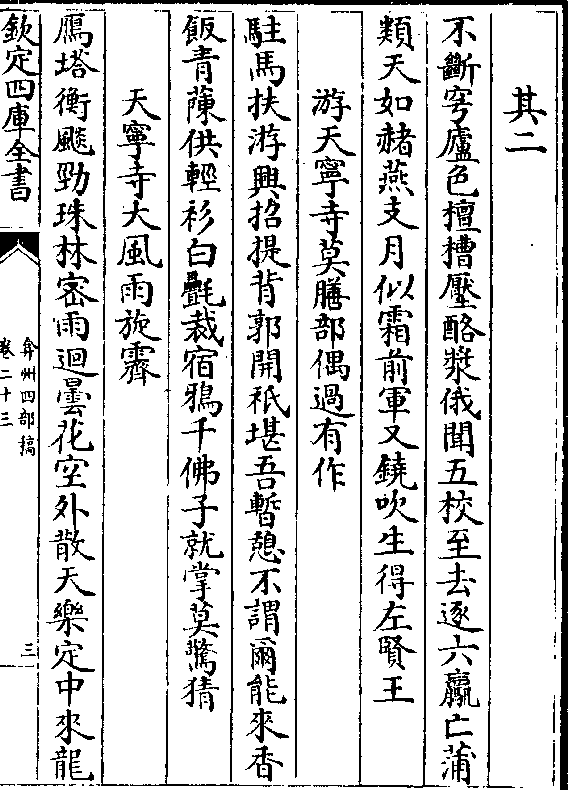 其二
不斷穹廬色檀槽壓酪漿俄聞五校至去逐六驘亡蒲
類天如赭燕支月似霜前軍又鐃吹生得左賢王
游天寧寺莫膳部偶過有作
駐馬扶游興招提背郭開秪堪吾暫憩不謂爾能來香
飯青蔯供輕衫白㲲裁宿鴉千佛子就掌莫驚猜
天寧寺大風雨旋霽
鴈塔衝飈勁珠林密雨迴曇花空外散天樂定中來龍
欽定四庫全書
弇州四部稿
卷二十三
三